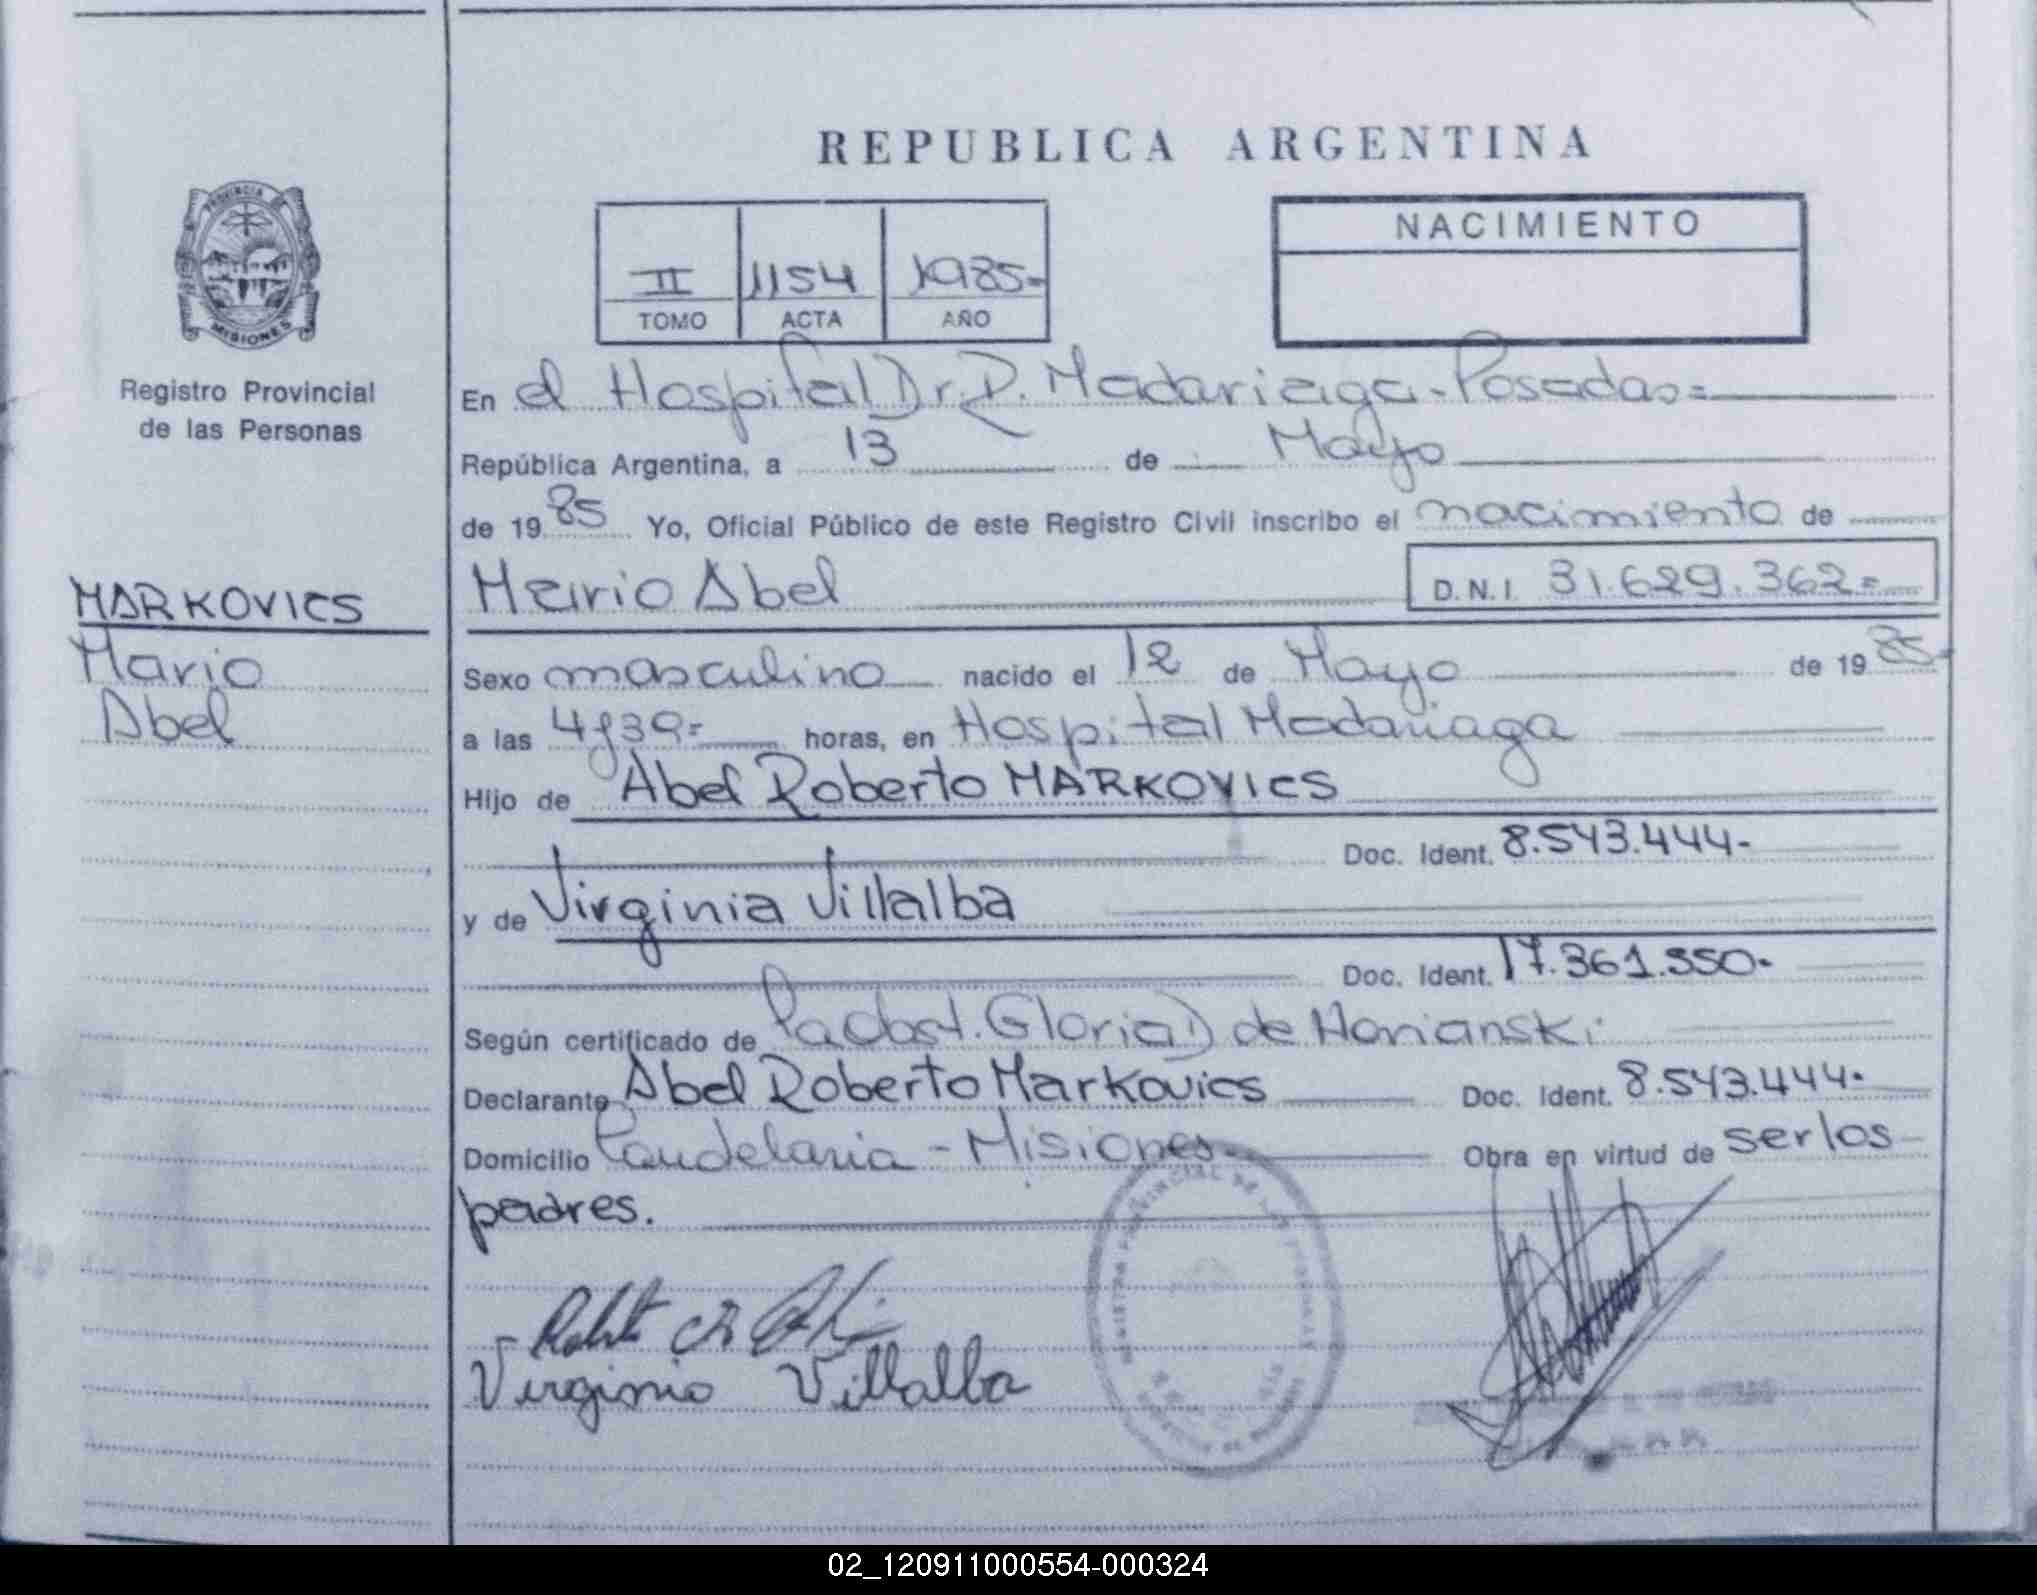 REPUBLICA ARGENTINA
PROVINCIA DE
MISIONES
Registro Provincial
de las Personas
II 1154 1985-
TOMO ACTA AÑO
NACIMIENTO
En el Hospital Dr. R. Madariaga - Posadas=
República Argentina, a 13 de Mayo
de 1985 Yo, Oficial Público de este Registro Civil inscribo el nacimiento de
MARKOVICS
Mario
Abel
Mario Abel
D.N.I. 31.629.362=
Sexo masculino nacido el 12 de Mayo de 1985-
a las 4y30= horas, en Hospital Madariaga
Hijo de Abel Roberto MARKOVICS
Doc. Ident. 8.543.444-
y de Virginia Villalba
Doc. Ident. 17.361.550-
Según certificado de la Obst. Gloria D de
Declarante Abel Roberto Markovics Doc. Ident. 8.543.444-
Domicilio Candelaria - Misiones Obra en virtud de ser los
padres.
Virginia Villalba
02_120911000554-000324